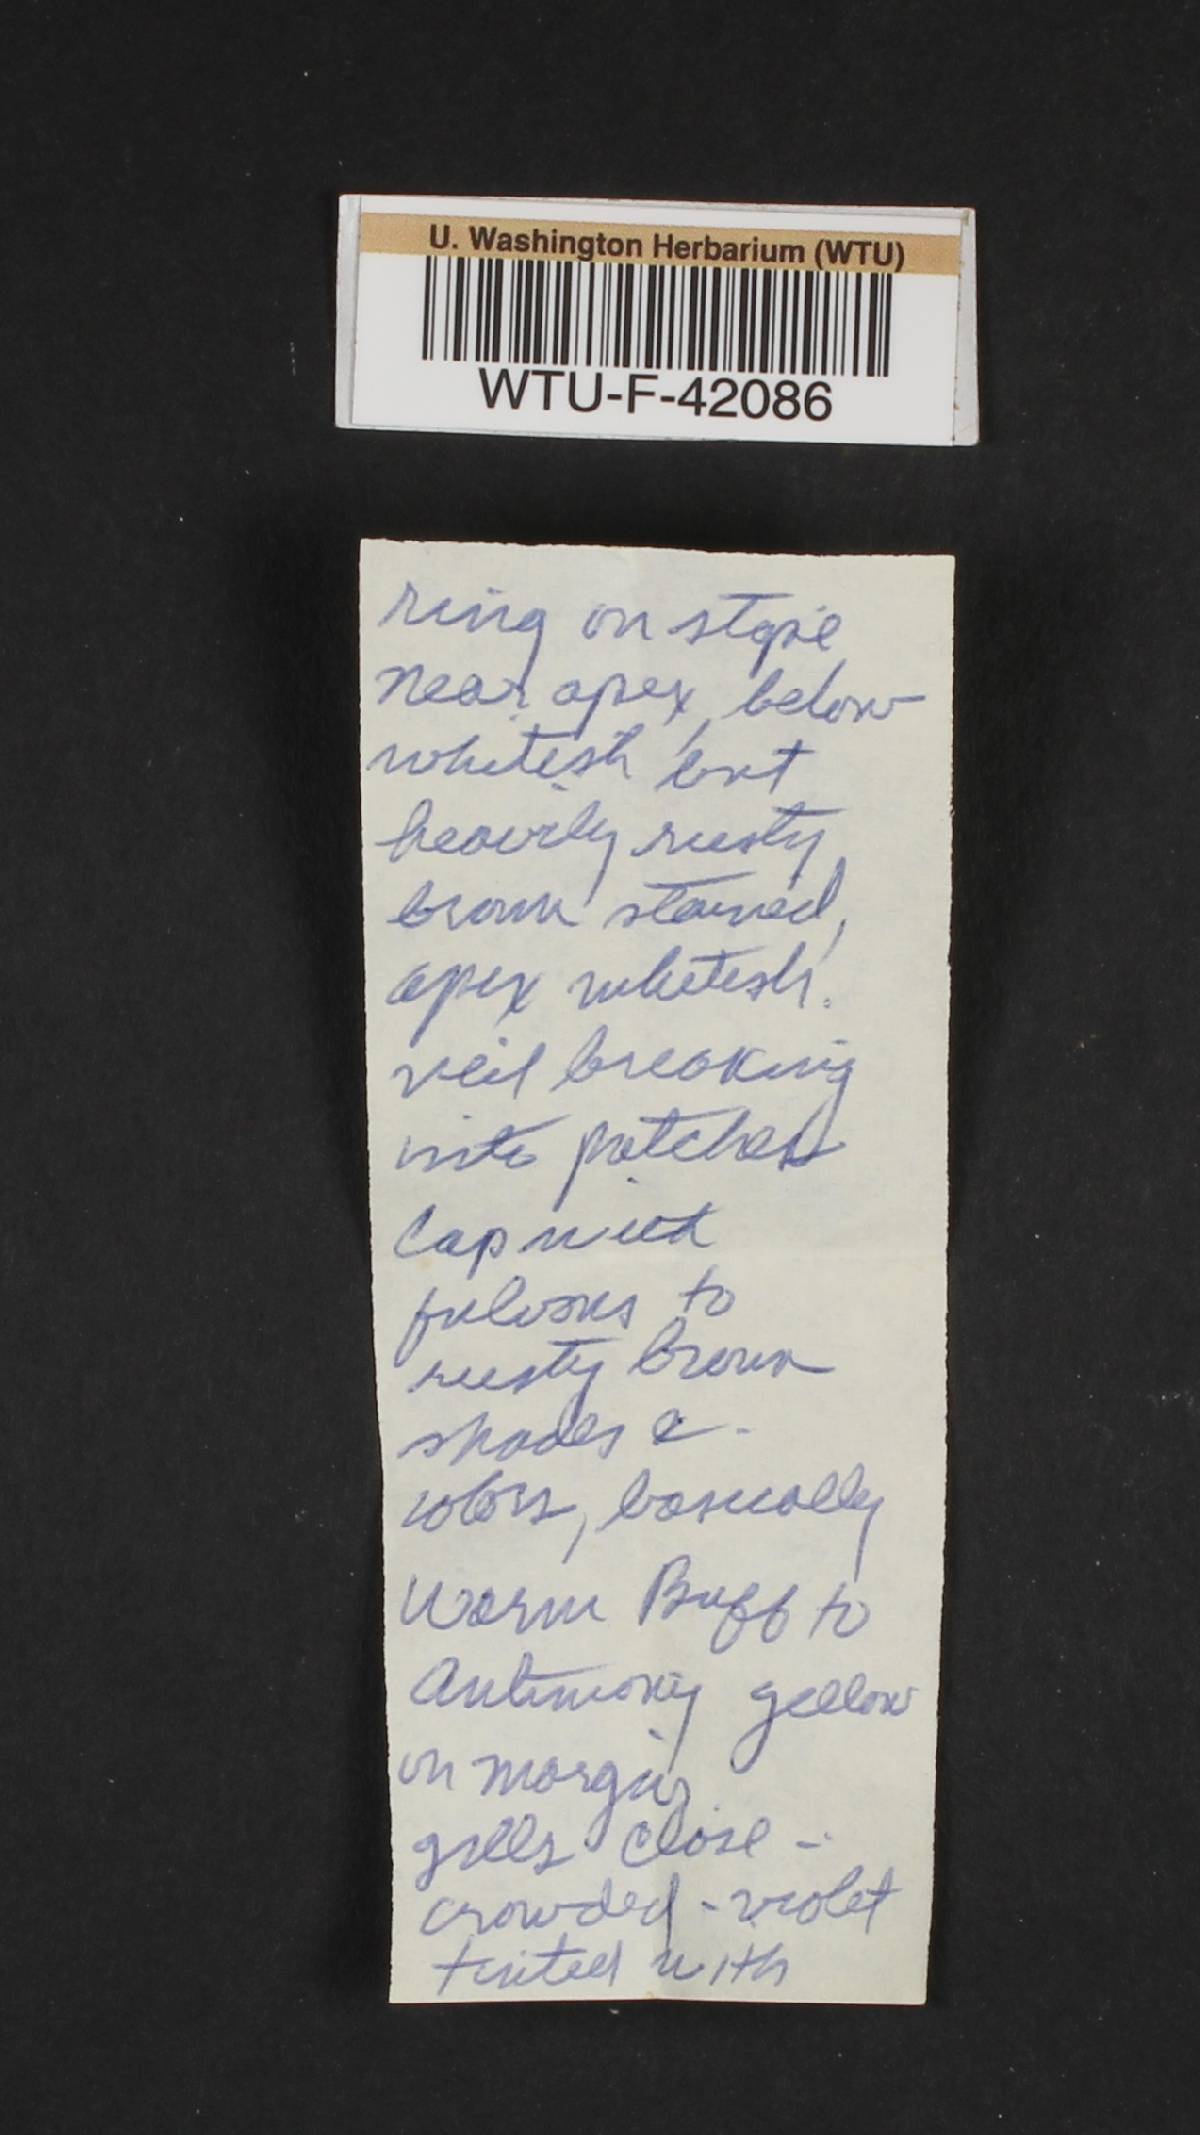 U. Washington Herbarium (WTU)
WTU-F-42086
ring on stipe
near apex, below
whitish but
heavily rusty
brown stained,
apex whitish.
veil breaking
into patches
Cap with
fulvous to
rusty brown
shades &
colors, basically
Warm Buff to
Antimony yellow
on margin
gills close -
crowded - violet
tinted with